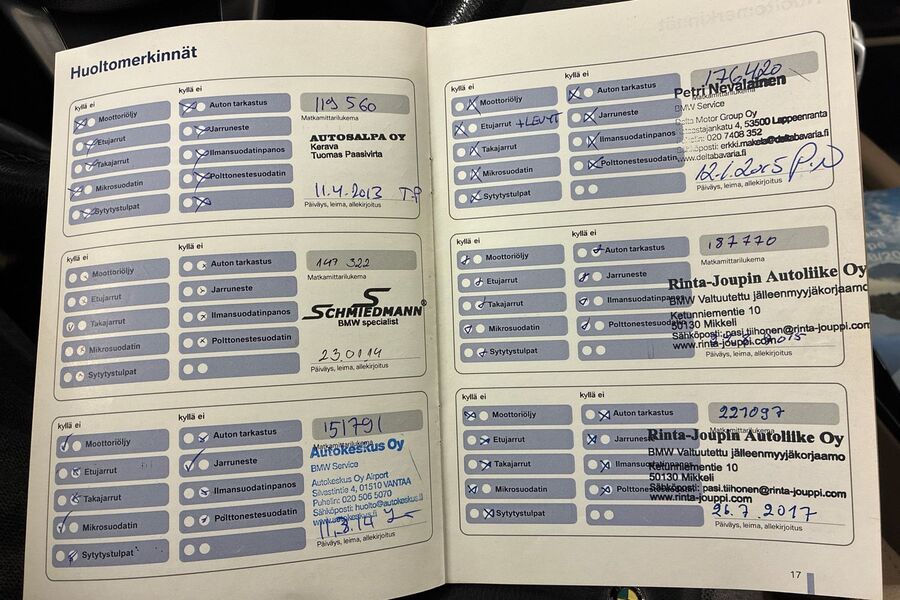 Huoltomerkinnät
kyllä ei
kyllä ei
Moottoriöljy
Etujarrut
Takajarrut
Mikrosuodatin
Sytytystulpat
Auton tarkastus
Jarruneste
Ilmansuodatinpanos
Polttonestesuodatin
119 560
Matkamittarilukema
AUTOSALPA OY
Kerava
Tuomas Paasivirta
11.4.2013 T.P
Päiväys, leima, allekirjoitus
kyllä ei
kyllä ei
Moottoriöljy
Etujarrut
Takajarrut
Mikrosuodatin
Sytytystulpat
Auton tarkastus
Jarruneste
Ilmansuodatinpanos
Polttonestesuodatin
147 322
Matkamittarilukema
SCHMIEDMANN®
BMW specialist
23.01.14
Päiväys, leima, allekirjoitus
kyllä ei
kyllä ei
Moottoriöljy
Etujarrut
Takajarrut
Mikrosuodatin
Sytytystulpat
Auton tarkastus
Jarruneste
Ilmansuodatinpanos
Polttonestesuodatin
151791
Matkamittarilukema
Autokeskus Oy
BMW Service
Autokeskus Oy Airport
Silvastintie 4, 01510 VANTAA
Puhelin: 020 506 5070
Sähköposti: huolto@autokeskus.fi
www.autokeskus.fi
11.8.14
Päiväys, leima, allekirjoitus
kyllä ei
kyllä ei
Moottoriöljy
Etujarrut +LEVYT
Takajarrut
Mikrosuodatin
Sytytystulpat
Auton tarkastus
Jarruneste
Ilmansuodatinpanos
Polttonestesuodatin
176420
Matkamittarilukema
Petri Nevalainen
BMW Service
Delta Motor Group Oy
4, 53500 Lappeenranta
020 7408 352
erkki.makela@deltabavaria.fi
www.deltabavaria.fi
12.1.2015 P.N
Päiväys, leima, allekirjoitus
kyllä ei
kyllä ei
Moottoriöljy
Etujarrut
Takajarrut
Mikrosuodatin
Sytytystulpat
Auton tarkastus
Jarruneste
Ilmansuodatinpanos
Polttonestesuodatin
187770
Matkamittarilukema
Rinta-Joupin Autoliike Oy
BMW Valtuutettu jälleenmyyjäkorjaamo
Ketunniementie 10
50130 Mikkeli
Sähköposti: pasi.tiihonen@rinta-jouppi.com
www.rinta-jouppi.com
Päiväys, leima, allekirjoitus
kyllä ei
kyllä ei
Moottoriöljy
Etujarrut
Takajarrut
Mikrosuodatin
Sytytystulpat
Auton tarkastus
Jarruneste
Ilmansuodatinpanos
227097
Matkamittarilukema
Rinta-Joupin Autoliike Oy
BMW Valtuutettu jälleenmyyjäkorjaamo
Ketunniementie 10
50130 Mikkeli
Sähköposti: pasi.tiihonen@rinta-jouppi.com
www.rinta-jouppi.com
26.7.2017
Päiväys, leima, allekirjoitus
17